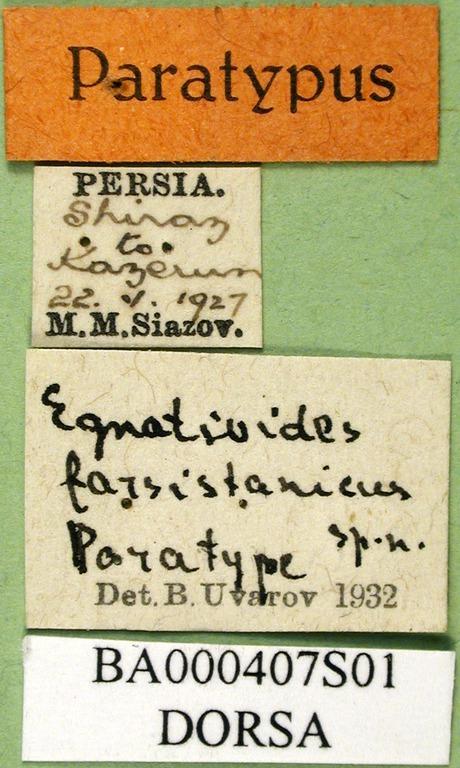 Paratypus
PERSIA.
Shiraz
to
Kazerun
22. V. 1927
M. M. Siazov.
Egnatioides
farsistanicus
Paratype sp. n.
Det. B. Uvarov 1932
BA000407S01
DORSA